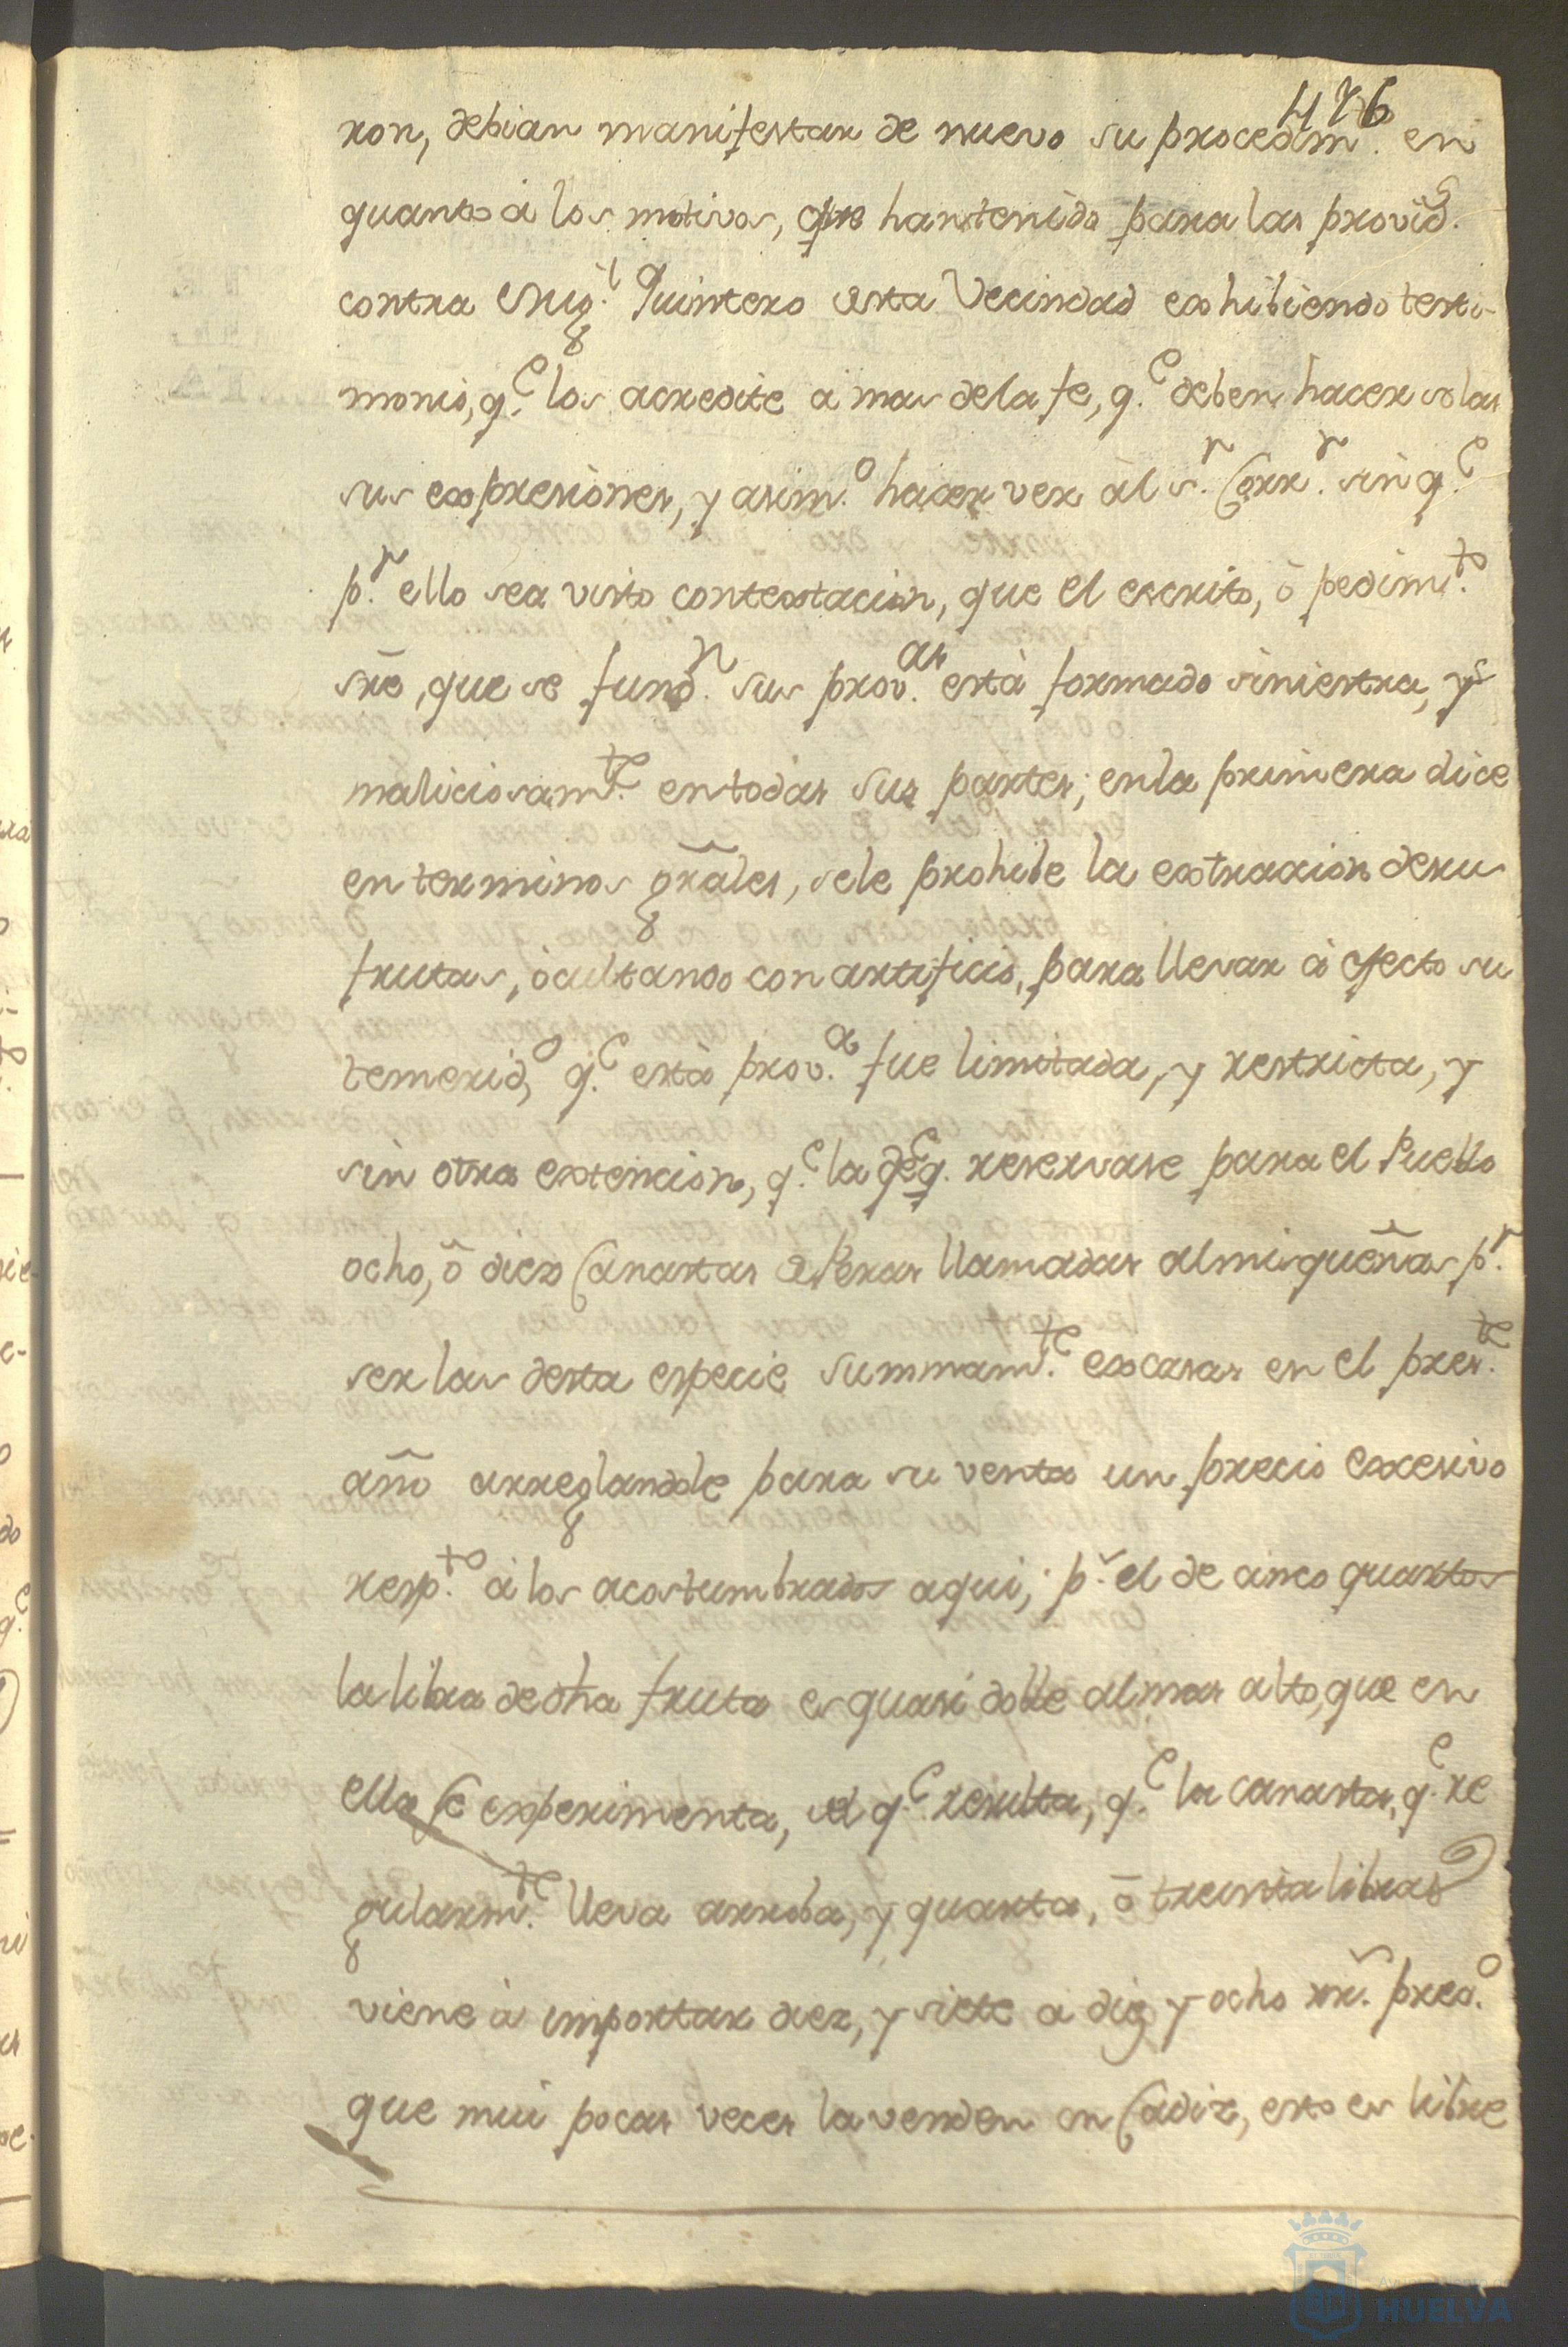 476
ron, debian manifestar de nuevo su procedim.to en
quanto à los motivos, que han tenido para las provid.s
contra Mig.l Quintero desta Vecindad exhibiendo testi-
monio, q.e los acredite a mas dela fe, q.e deben hacer solas
sus expresiones, y asim.o hacer ver àl s.r Corr.r sin q.e
p.r ello sea visto contextacion, que el escrito, ò pedim.to
sre, que se fund.n sus prov.as està formado siniestra, y
maliciosam.te en todas sus partes; en la primera dice
en terminos grãles, sele prohibe la extraccion desu
frutas, òcultando con artificio, para llevar à efecto su
temerid.d q.e està prov.a fue limitada, y restricta, y
sin otra extencion, q.e la de q.e reservase para el Pueblo
ocho, ô diez Canastas de Peras llamadas almisqueñas p.r
ser las desta especie summam.te excasas en el pres.te
año arreglandole para su venta un precio excesivo
resp.to à los acostumbrados aqui; p.s el de cinco quartos
la libra de dha fruta es quasi doble al mas alto, que en
ella se experimenta, del q.e resulta, q.e la canasta, q.e re
gularm.te lleva arroba, y quarta, ô treinta libras
viene à importar diez, y siete a diez y ocho rr.s precio
que mui pocas veces la venden en Cadiz, esto es libre
HUELVA